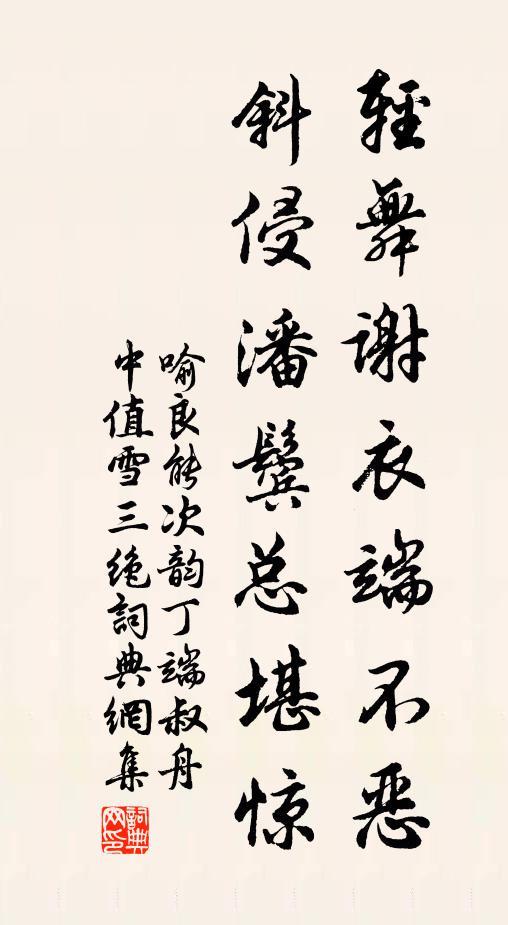 輕舞谢衣端不恶
斜侵潘鬓总堪惊
喻良能次韵丁端叔舟
中值雪三绝詞典網集
詞典网印